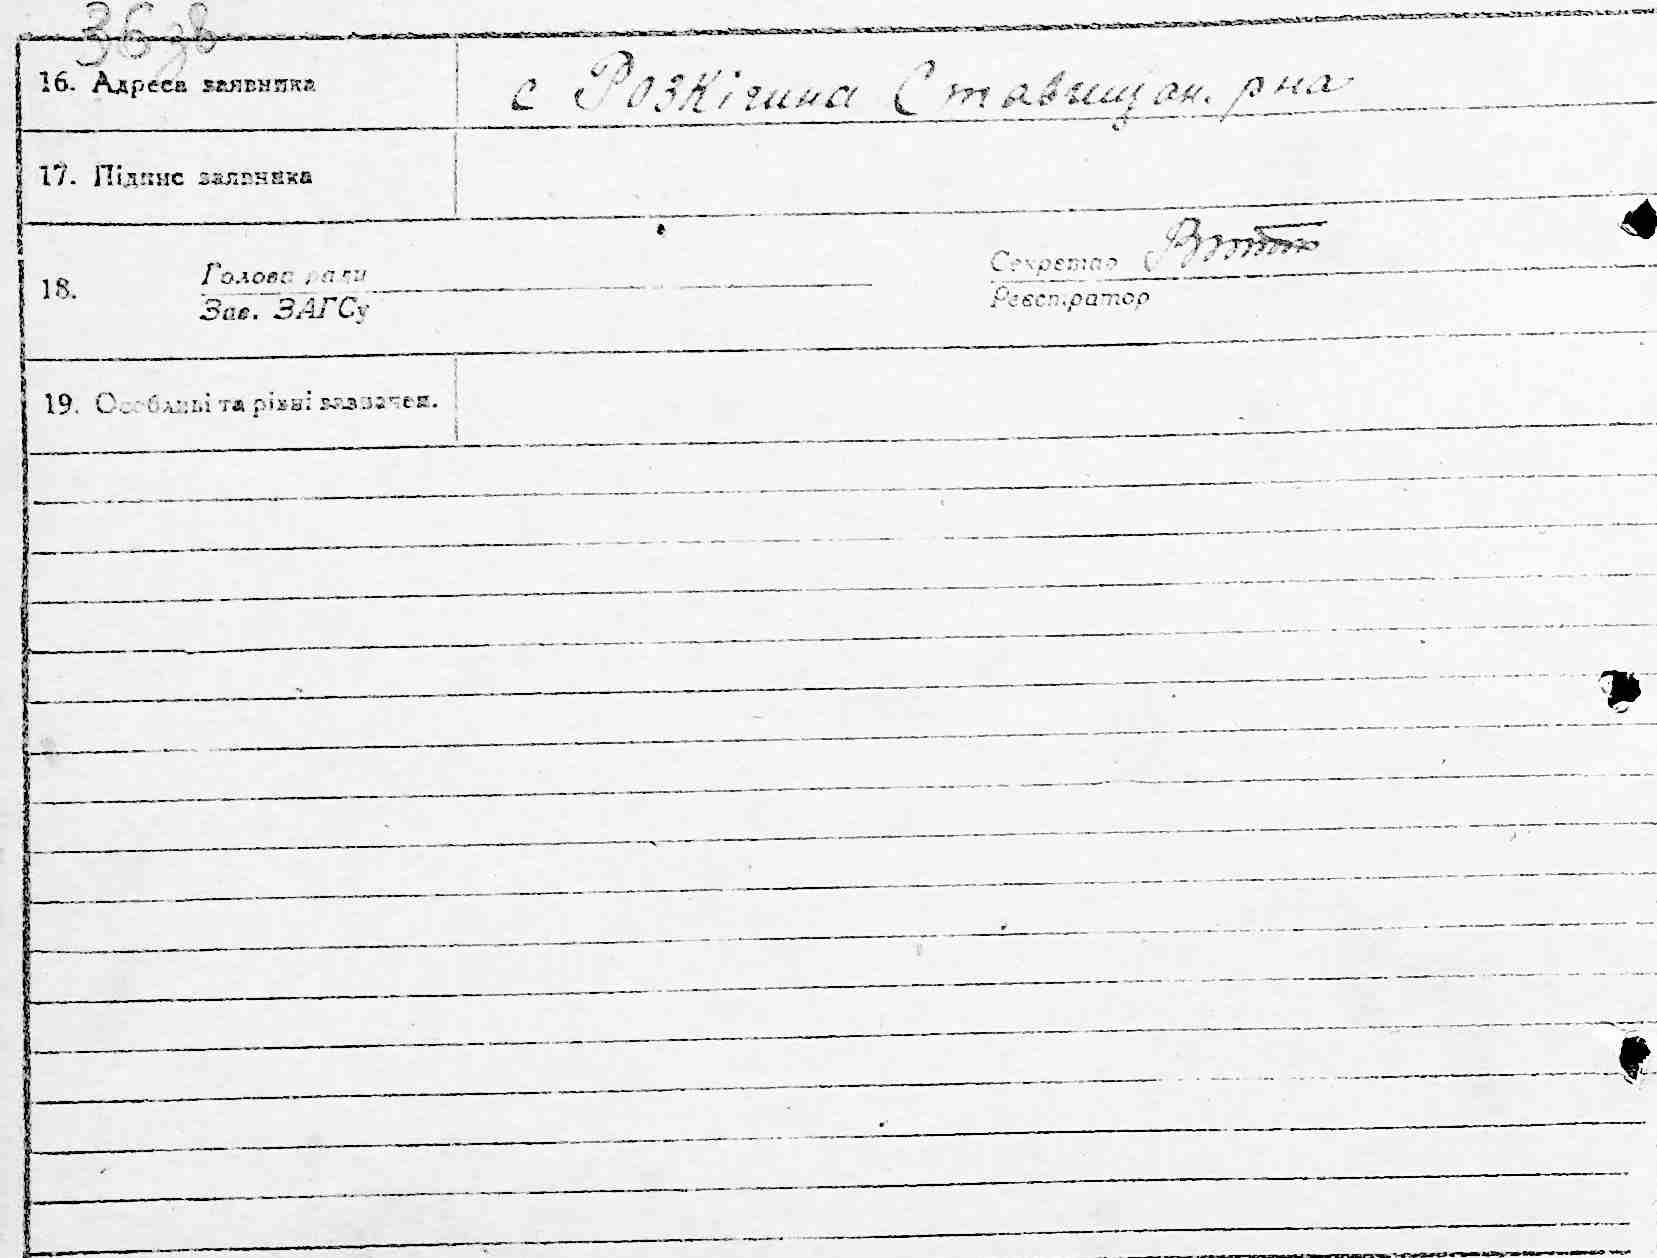 36 зв
16. Адреса заявника с Розкішна Ставищан. рна
17. Підпис заявника
18. Голова ради Секретар
Зав. ЗАГСу Реєстратор
19. Особливі та різні зазначен.